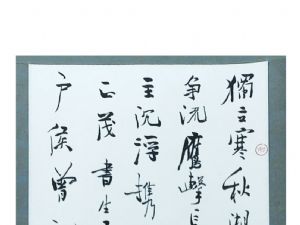 獨立寒秋湘
争流鷹擊長
主沉浮携
正茂書生
户侯曾